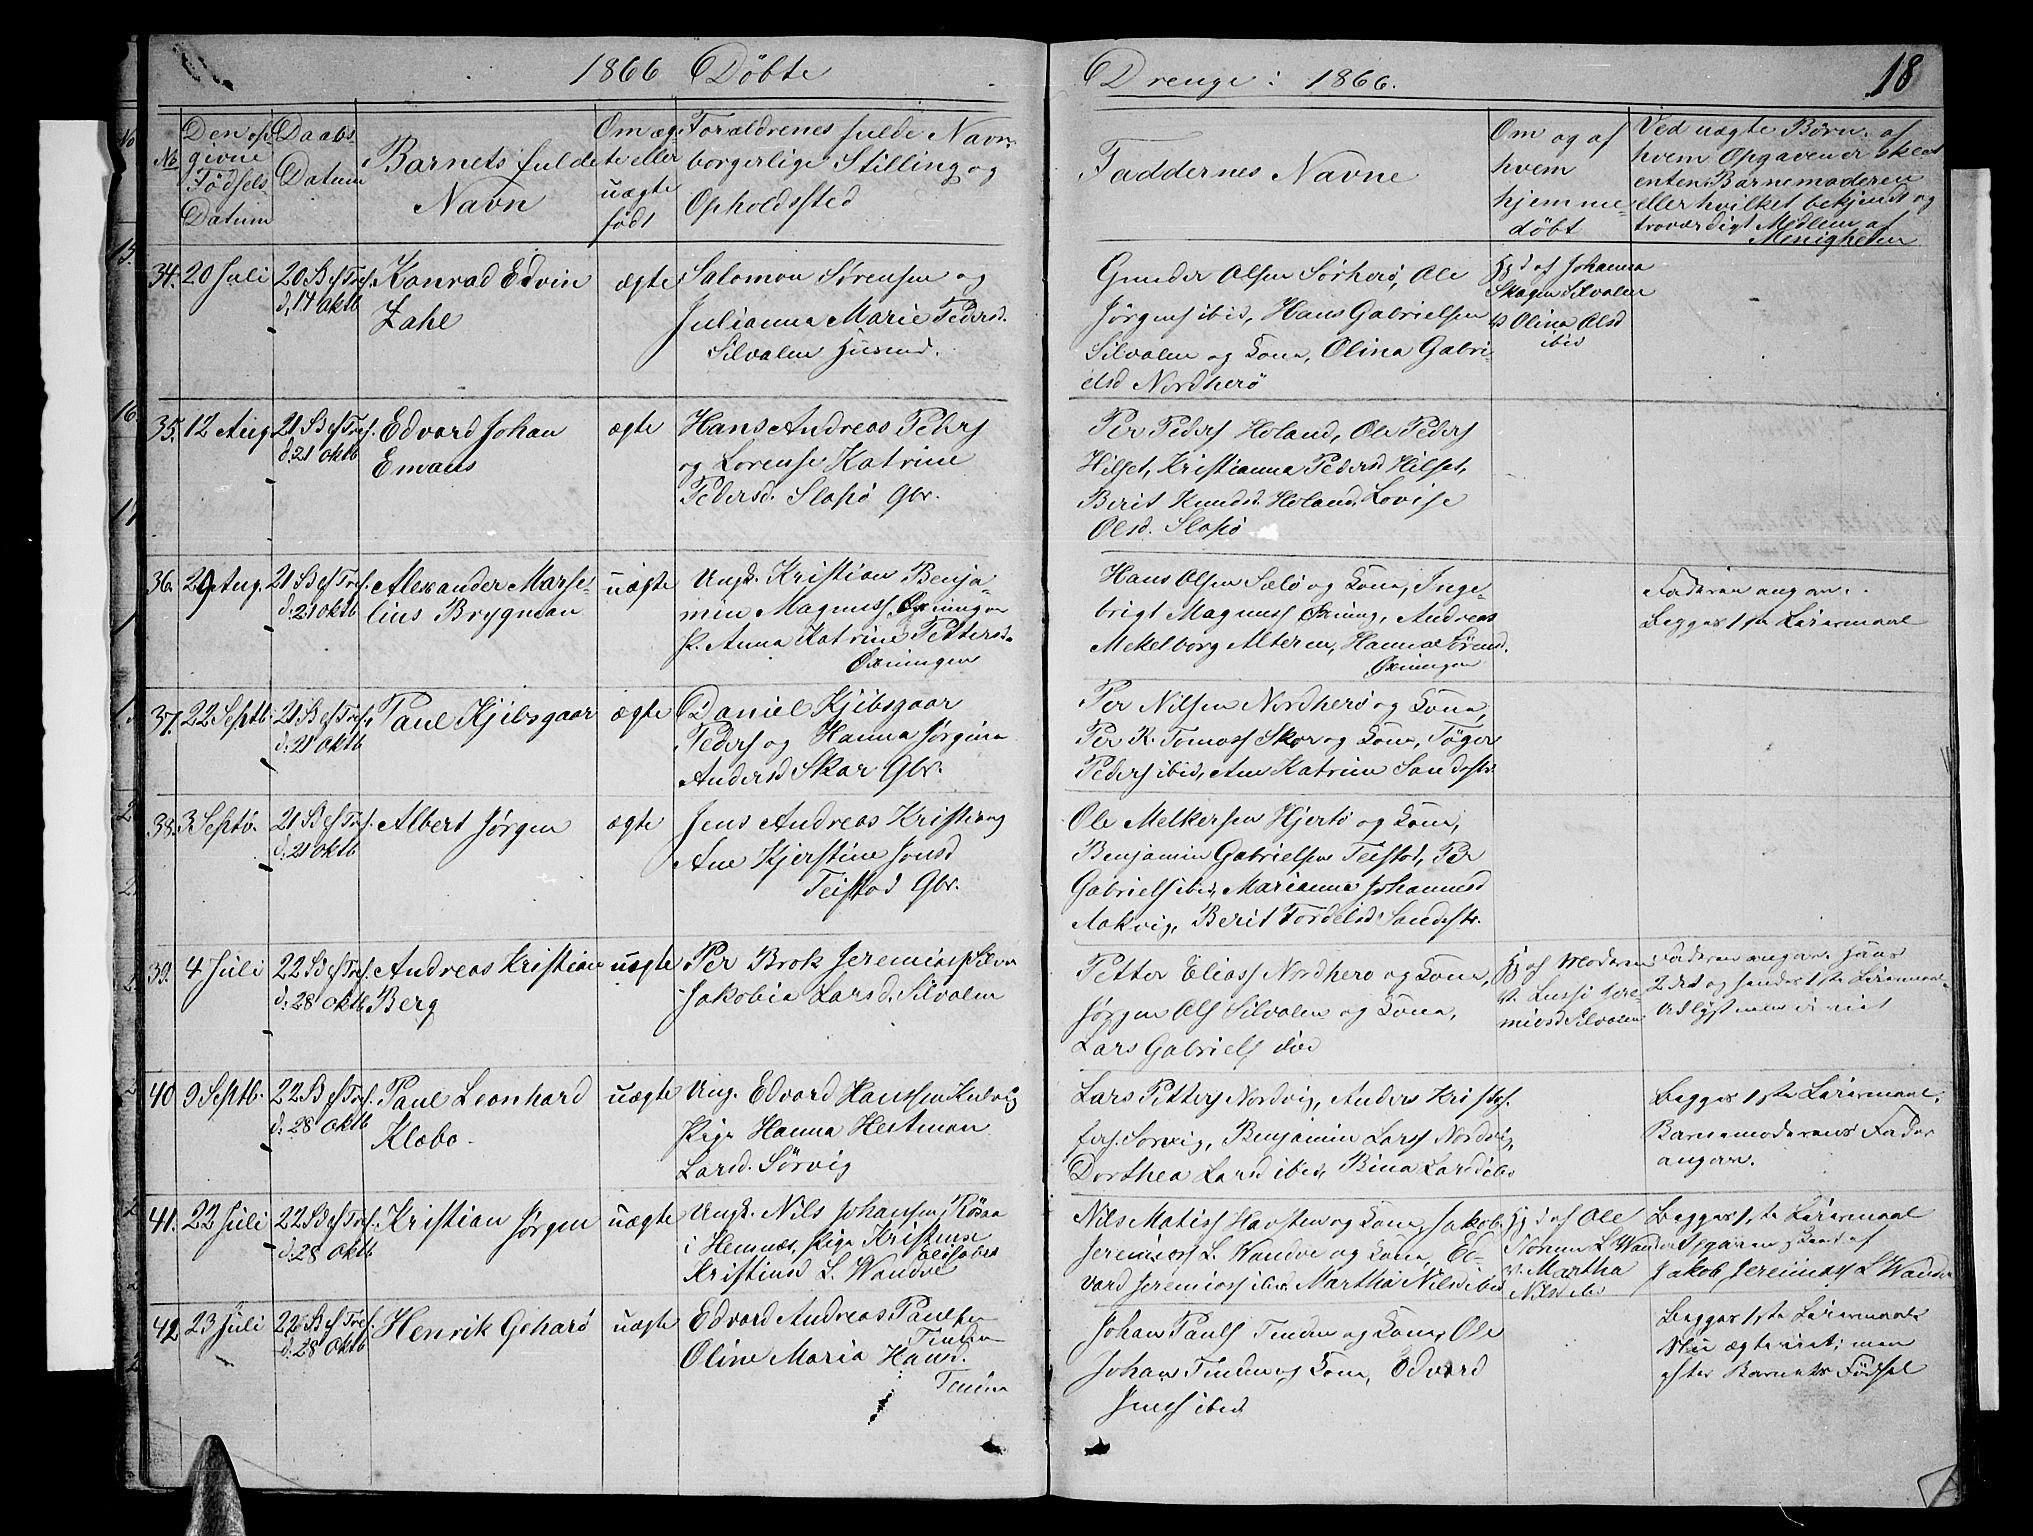 1866 Döbte
Drenge: 1866.
18
No
Den op-
givne
Födsels
Datum
Daabs
Datum
Barnets fulde
Navn
Om æg-
te eller
uægte
født
Forældrenes fulde Navn,
borgerlige Stilling og
Opholdssted
Faddernes Navne
Om og af
hvem
hjemme-
döbt
Ved uægte Børn, af
hvem Opgaven er skeet
enten Barnemoderen
eller hvilket bekjendt og
troværdigt Medlem af
Menigheden
34. 20 Juli
20 S ef Tref.
d. 14 Oktb
Konrad Edvin
Zahl
ægte
Salomon Sørensen og
Julianna Marie Peders d.
Silvalen Huusmd.
Gunder Olsen Sørherö, Ole
Jørgens ibid, Hans Gabrielsen
Silvalen og Kona, Olina Gabri-
elsd Nordherö
Hjd af Johanna
Skagen Silvalen
Olina Olsd
ibid
35. 12 Aug.
21 S ef Tref.
d. 21 Oktb
Edvard Johan
Emaus
ægte
Hans Andreas Peders
og Lorense Katrine
Pedersd. Slapö Gbr.
Per Peders Holand, Ole Peders
Hilset, Kristianna Pedersd Hilset,
Berit Knudsd. Holand, Lovise
Olsd. Slapö
36. 29 Aug.
21 S ef Tref.
d. 21 Oktb
Alexander Marse-
lius Brygman
uægte
Ungk. Kristian Benja-
min Magnuss Öxningen
P. Anna Katrine Pettersd.
Öxningen
Hans Olsen Sælö og Kona, Inge-
brigt Magnuss Öxning, Andreas
Mekelborg Alteren, Hanna Sörensd.
Öxningen
Faderen angaven.
Begges 1ste Leiermaal
37. 22 Septb.
21 S ef Tref.
d. 21 Oktb
Paul Kjibsgaar
ægte
Daniel Kjibsgaar
Peders og Hanna Jørgina
Andersd Skar Gbr.
Per Nilsen Nordherö og Kona,
Per R. Tomass Skar og Kona, Töger
Peders ibid, Ane Katrine Sandstr.
38. 3 Septb.
21 S ef Tref.
d. 21 Oktb
Albert Jørgen
ægte
Jens Andreas Kristians
Ane Kjerstine Jonsd
Teistad Gbr.
Ole Melkersen Hjertö og Kona,
Benjamin Gabrielsen Teistad, Per
Gabriels ibid, Marianne Johannesd
Aakvig, Berit Tordelsd Sandstr.
39. 4 Juli
22 S ef Tref.
d. 28 Oktb
Andreas Kristian
Berg
uægte
Per Brok Jeremiass Silva
Jakobia Larsd. Silvalen
Petter Eliass Nordherö og Kona,
Jørgen Ols Silvalen og Kona,
Lars Gabriels ibid
Hj af Moderen
Lussi Jere-
miasd Silvalen
Faderen angaven. Hans
2det og hendes 1ste Leiermaal.
Udlyst men ei viet
40 9 Septb.
22 S ef Tref.
d. 28 Oktb
Paul Leonhard
Klæbo
uægte
Ung. Edvard Hanssen Kulvig
Pige Hanna Heitman
Larsd. Sörvig
Lars Petters Nordvig, Anders Kristof-
fers. Sörvig, Benjamin Larss Nordvig,
Dorthea Larsd ibid, Bina Larsd ibi
Begges 1ste Leiermaal.
Barnemoderens Fader
angaven.
41. 22 Juli
22 S ef Tref.
d. 28 Oktb
Kristian Jørgen
uægte
Ungk. Nils Johansen Røsaa
i Hemnæs, Pige Kristense
Elisabet
Kristensd L. Wandve
Nils Matiss Havsten og Kona, Jakob
Jeremiass L. Wandve og Kona, Ed-
vard Jeremiass ibid, Martha Nilsd ibid
Hjd af Ole
Normen L Wandve
Martha
Nilsd ibid
Begges 1ste Leiermaal
af
Jakob Jeremiass L Wandve
42 23 Juli
22 S ef Tref.
d. 28 Oktb
Henrik Gehard
uægte
Edvard Andreas Paulsen
Tenden
Oline Maria Hansd.
Tenden
Johan Pauls Tinden og Kona, Ole
Johans Tinden og Kona, Edvard
Jens ibid
Begges 1ste Leiermaal.
ægteviet; men
efter Barnets Födsel